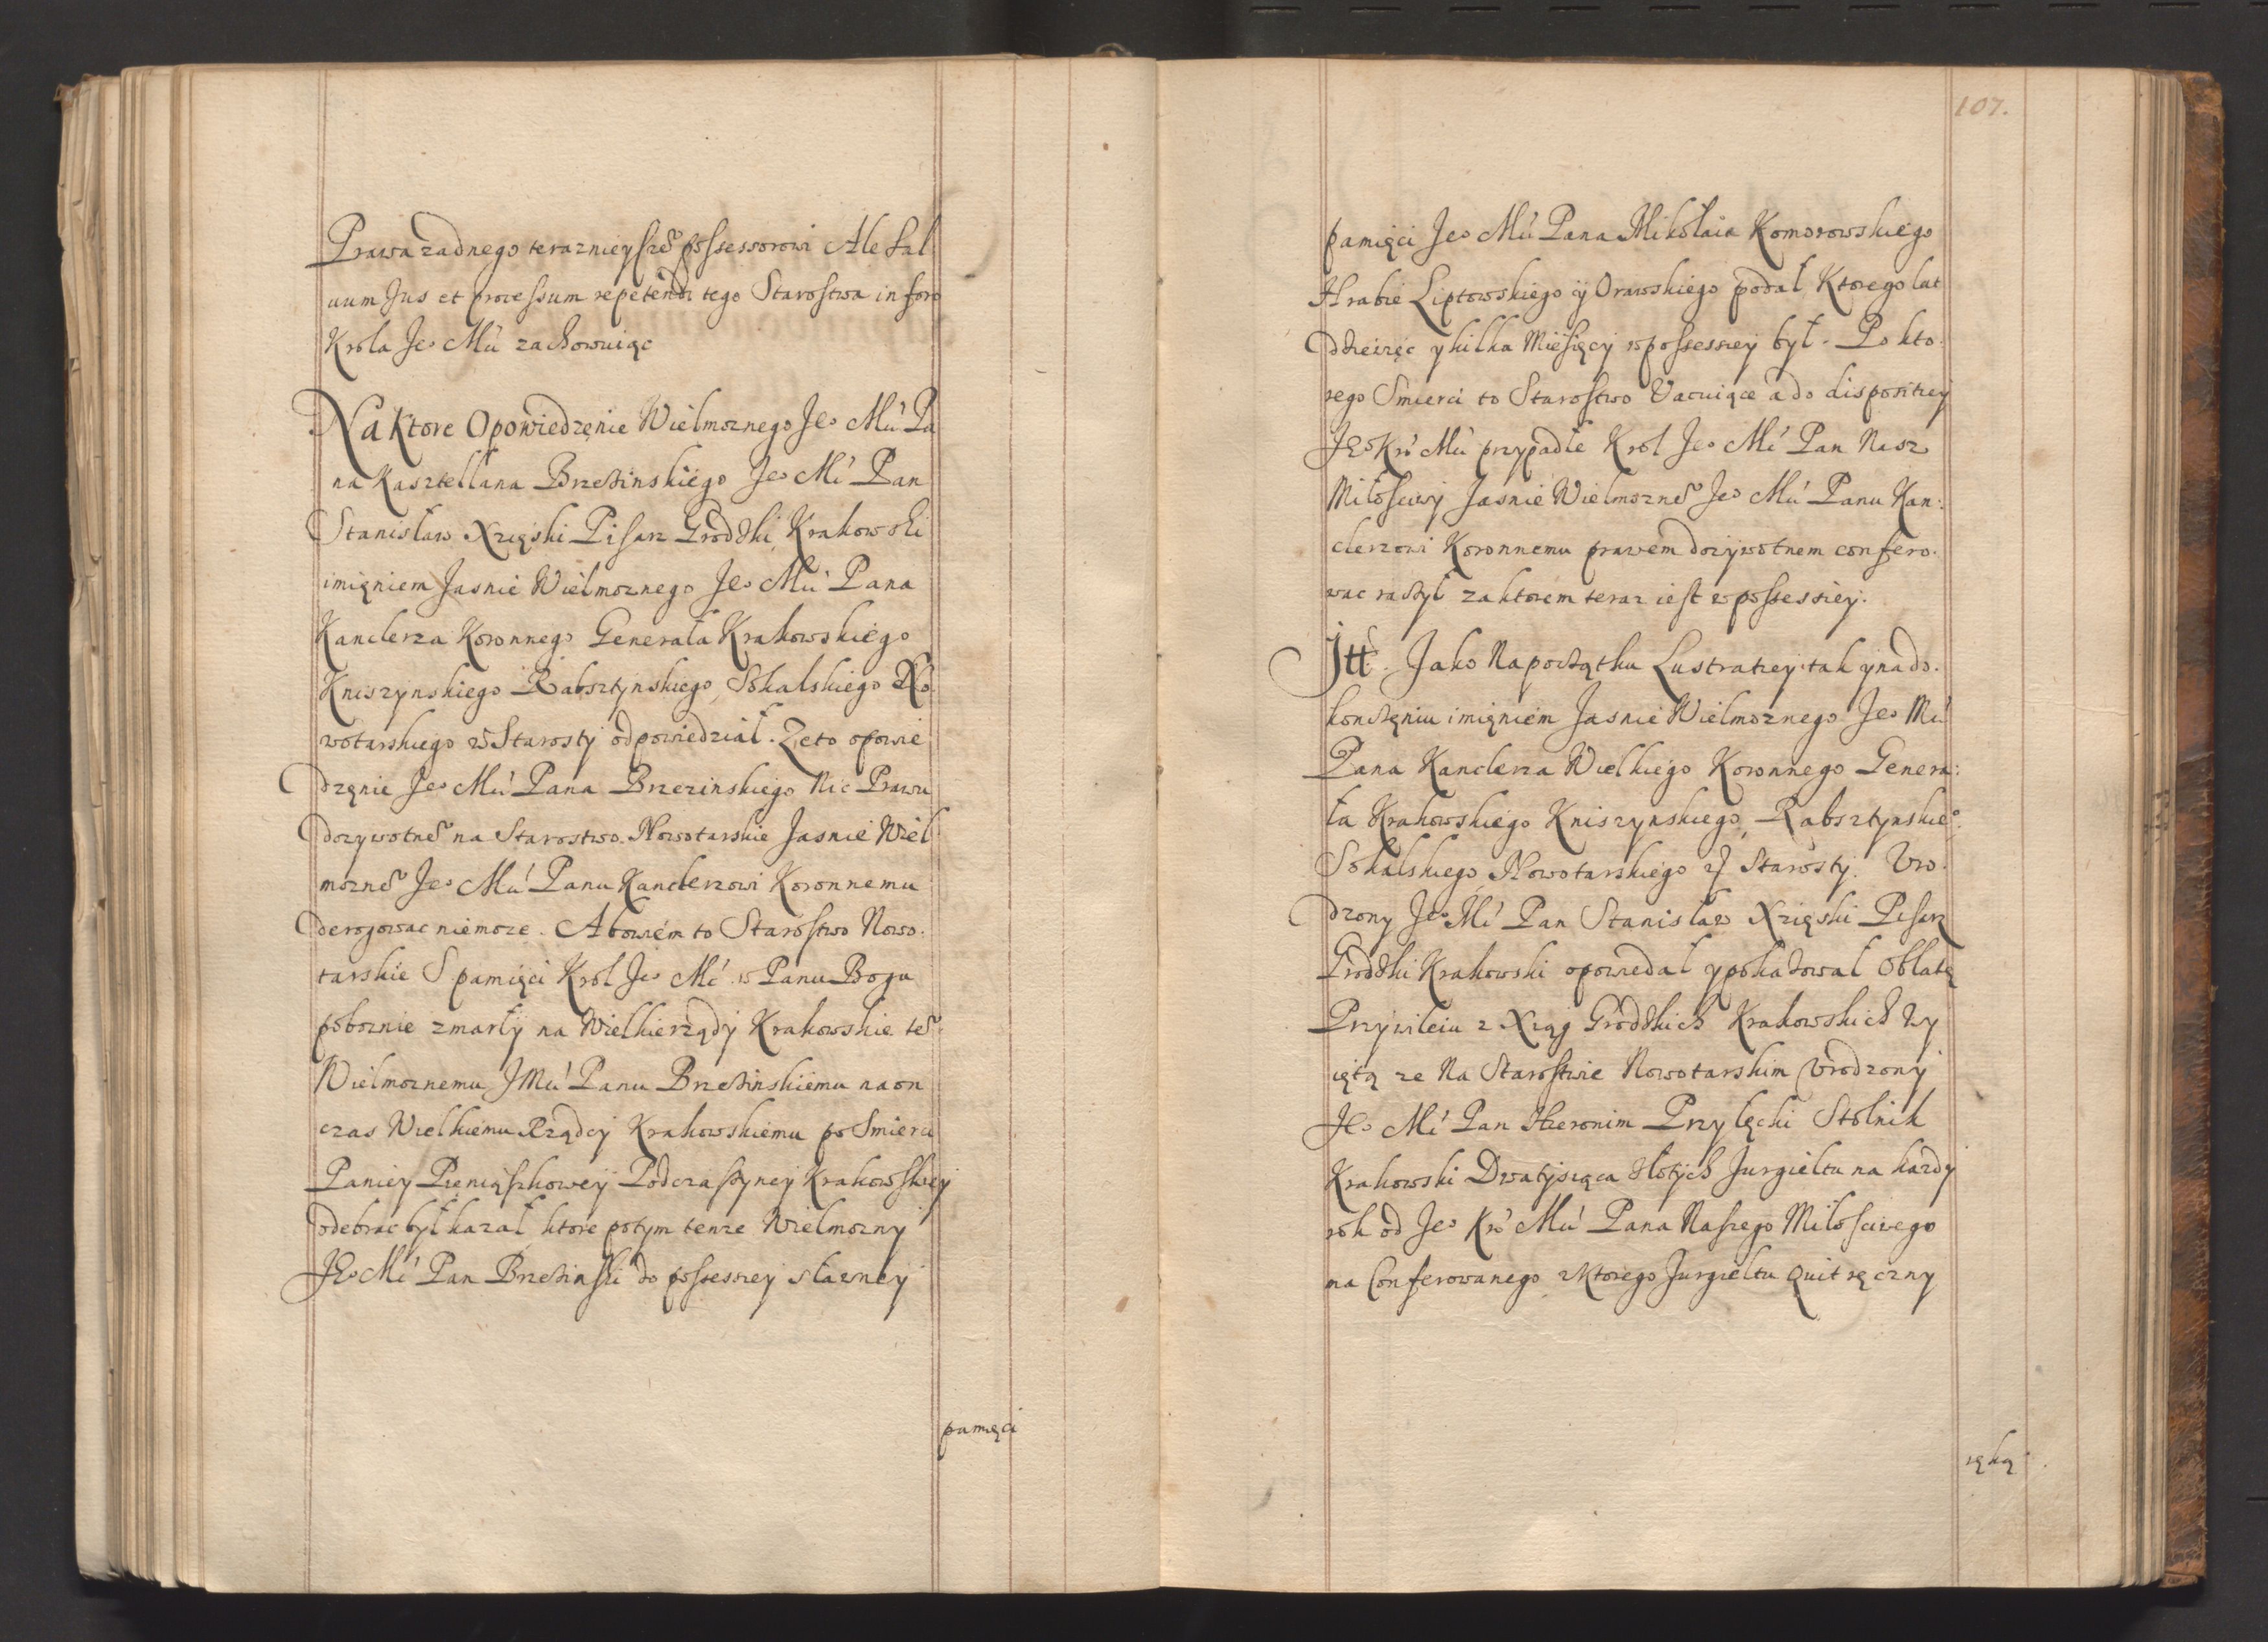 Prawa zadnego teraznieyszeo possessorowi Ale sal
uum Jus et processum repetendi tego Starostwa in foro
Krola Jeo Mći zachowuiąc
Na Ktore Opowiedzęnie Wielmoznego Jeo Mći Pa
na Kasztellana Brzezinskiego Jeo Mć Pan
Stanisław Xzięski Pisarz Grodzki Krakowski
imięniem Jasnie Wielmoznego Jeo Mći Pana
Kanclerza Koronnego Generała Krakowskiego
Kniszynskiego Rabsztynskiego, Sokalskiego No
wotarskiego Starosty odpowiedział. Ze to opowie
dzęnie Jeo Mći Pana Brzezinskiego Nic Prawu
dozywotneo na Starostwo Nowotarskie Jasnie Wiel
mozneo Jeo Mći Panu Kanclerzowi Koronnemu
derogowac niemoze. Abowiem to Starostwo Nowo:
tarskie S pamięci Krol Jeo Mć w Panu Bogu
poboznie zmarły na Wielkierządy Krakowskie teo
Wielmoznemu JMći Panu Brzezinskiemu na on
czas Wielkiemu Rządcy Krakowskiemu po Smierci
Paniey Pieniąszkowey Podczaszyney Krakowskiey
odebrac był kazał, ktore potym tenze Wielmozny
Jeo Mć Pan Brzezinski do possessiey sławney
pamięci
107.
pamięci Jeo Mći Pana Mikołaia Komorowskiego
Hrabie Liptowskiego y Orawskiego podał, Ktorego lat
dziewięc y kilka Miesięcy w possessiey był. Po kto:
rego Smierci to Starostwo Vacuiące a do dispositiey
Jeo Kro Mći przypadłe Krol Jeo Mć Pan Nasz
Miłosciwy Jasnie Wielmozneo Jeo Mći Panu Kan:
clerzowi Koronnemu prawem dozywotnem confero:
wac raczył za ktorem teraz iest w possessiey.
Itt. Jako Napoczątku Lustratiey tak y na do:
konczęniu imięniem Jasnie Wielmoznego Jeo Mći
Pana Kanclerza Wielkiego Koronnego Genera:
ła Krakowskiego Kniszynskiego, Rabsztynskieo
Sokalskiego, Nowotarskiego Starosty. Vro:
dzony Jeo Mć Pan Stanisław Xzięski Pisarz
Grodzki Krakowski opowiedał y pokazował Oblatę
Przywileiu z Xiąg Grodzkich Krakowskich Wy
iętą ze Na Starostwie Nowotarskim Vrodzony
Jeo Mć Pan Hieronim Przyłęcki Stolnik
Krakowski Dwatysiąca złotych Jurgieltu na kazdy
rok od Jeo Kro Mći Pana Naszego Miłosciwego
ma Conferowanego z Ktorego Jurgieltu Quit ręczny
ręką